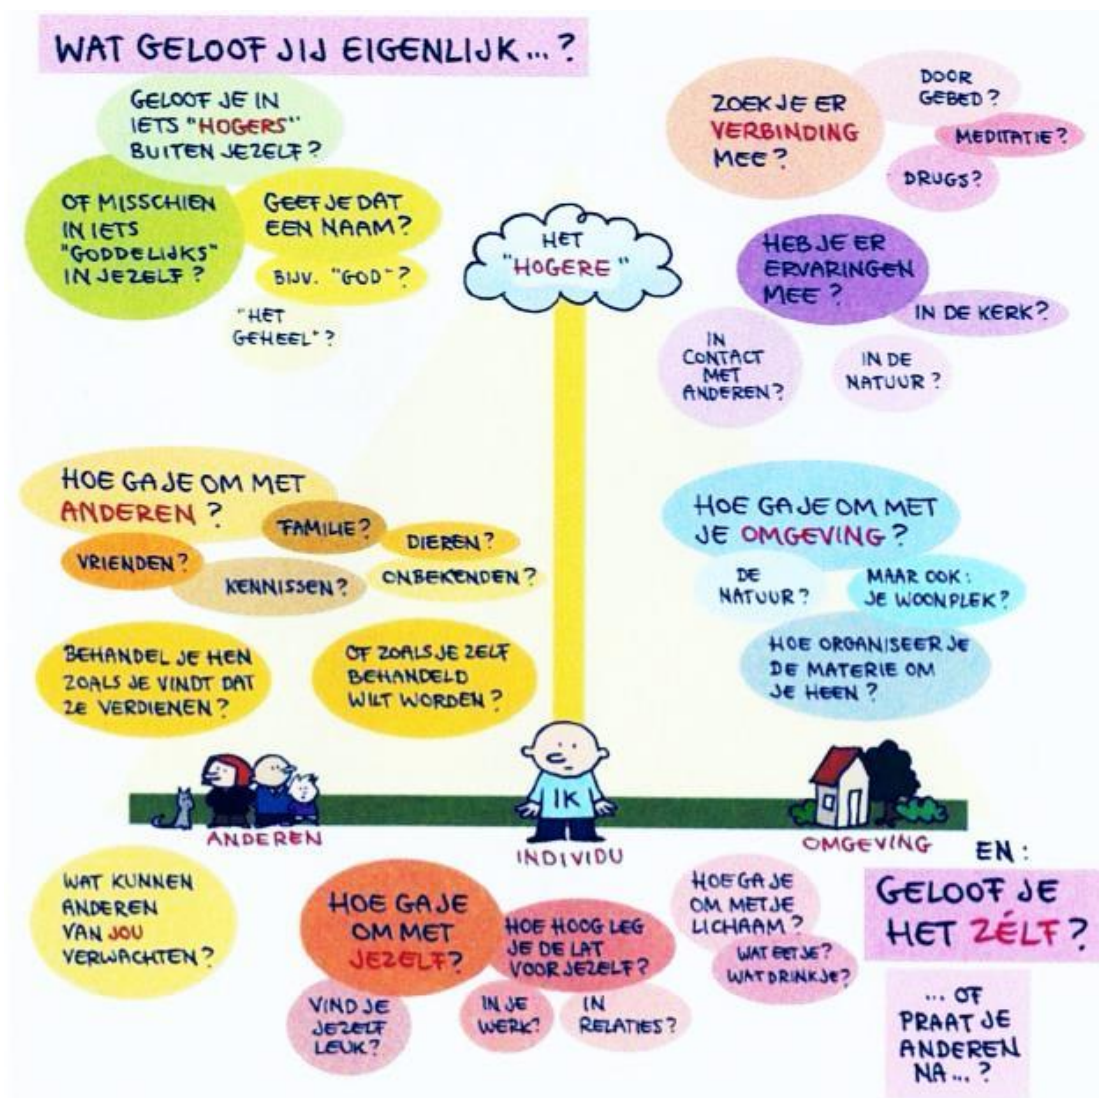 WAT GELOOF JIJ EIGENLIJK...?
GELOOF JE IN
IETS "HOGERS"
BUITEN JEZELF?
OF MISSCHIEN
IN IETS
"GODDELIJKS"
IN JEZELF?
GEEF JE DAT
EEN NAAM?
BIJV. "GOD"?
"HET
GEHEEL"?
HET
"HOGERE"
ZOEK JE ER
VERBINDING
MEE?
DOOR
GEBED?
MEDITATIE?
DRUGS?
HEB JE ER
ERVARINGEN
MEE?
IN DE KERK?
IN
CONTACT
MET
ANDEREN?
IN DE
NATUUR?
HOE GA JE OM MET
ANDEREN?
FAMILIE?
VRIENDEN?
DIEREN?
KENNISSEN?
ONBEKENDEN?
BEHANDEL JE HEN
ZOALS JE VINDT DAT
ZE VERDIENEN?
OF ZOALS JE ZELF
BEHANDELD
WILT WORDEN?
HOE GA JE OM MET
JE OMGEVING?
DE
NATUUR?
MAAR OOK:
JE WOONPLEK?
HOE ORGANISEER JE
DE MATERIE OM
JE HEEN?
IK
ANDEREN
INDIVIDU
OMGEVING
WAT KUNNEN
ANDEREN
VAN JOU
VERWACHTEN?
HOE GA JE
OM MET
JEZELF?
HOE HOOG LEG
JE DE LAT
VOOR JEZELF?
VIND JE
JEZELF
LEUK?
IN JE
WERK?
IN
RELATIES?
HOE GA JE
OM MET JE
LICHAAM?
WAT EET JE?
WAT DRINK JE?
EN:
GELOOF JE
HET ZÉLF?
... OF
PRAAT JE
ANDEREN
NA...?